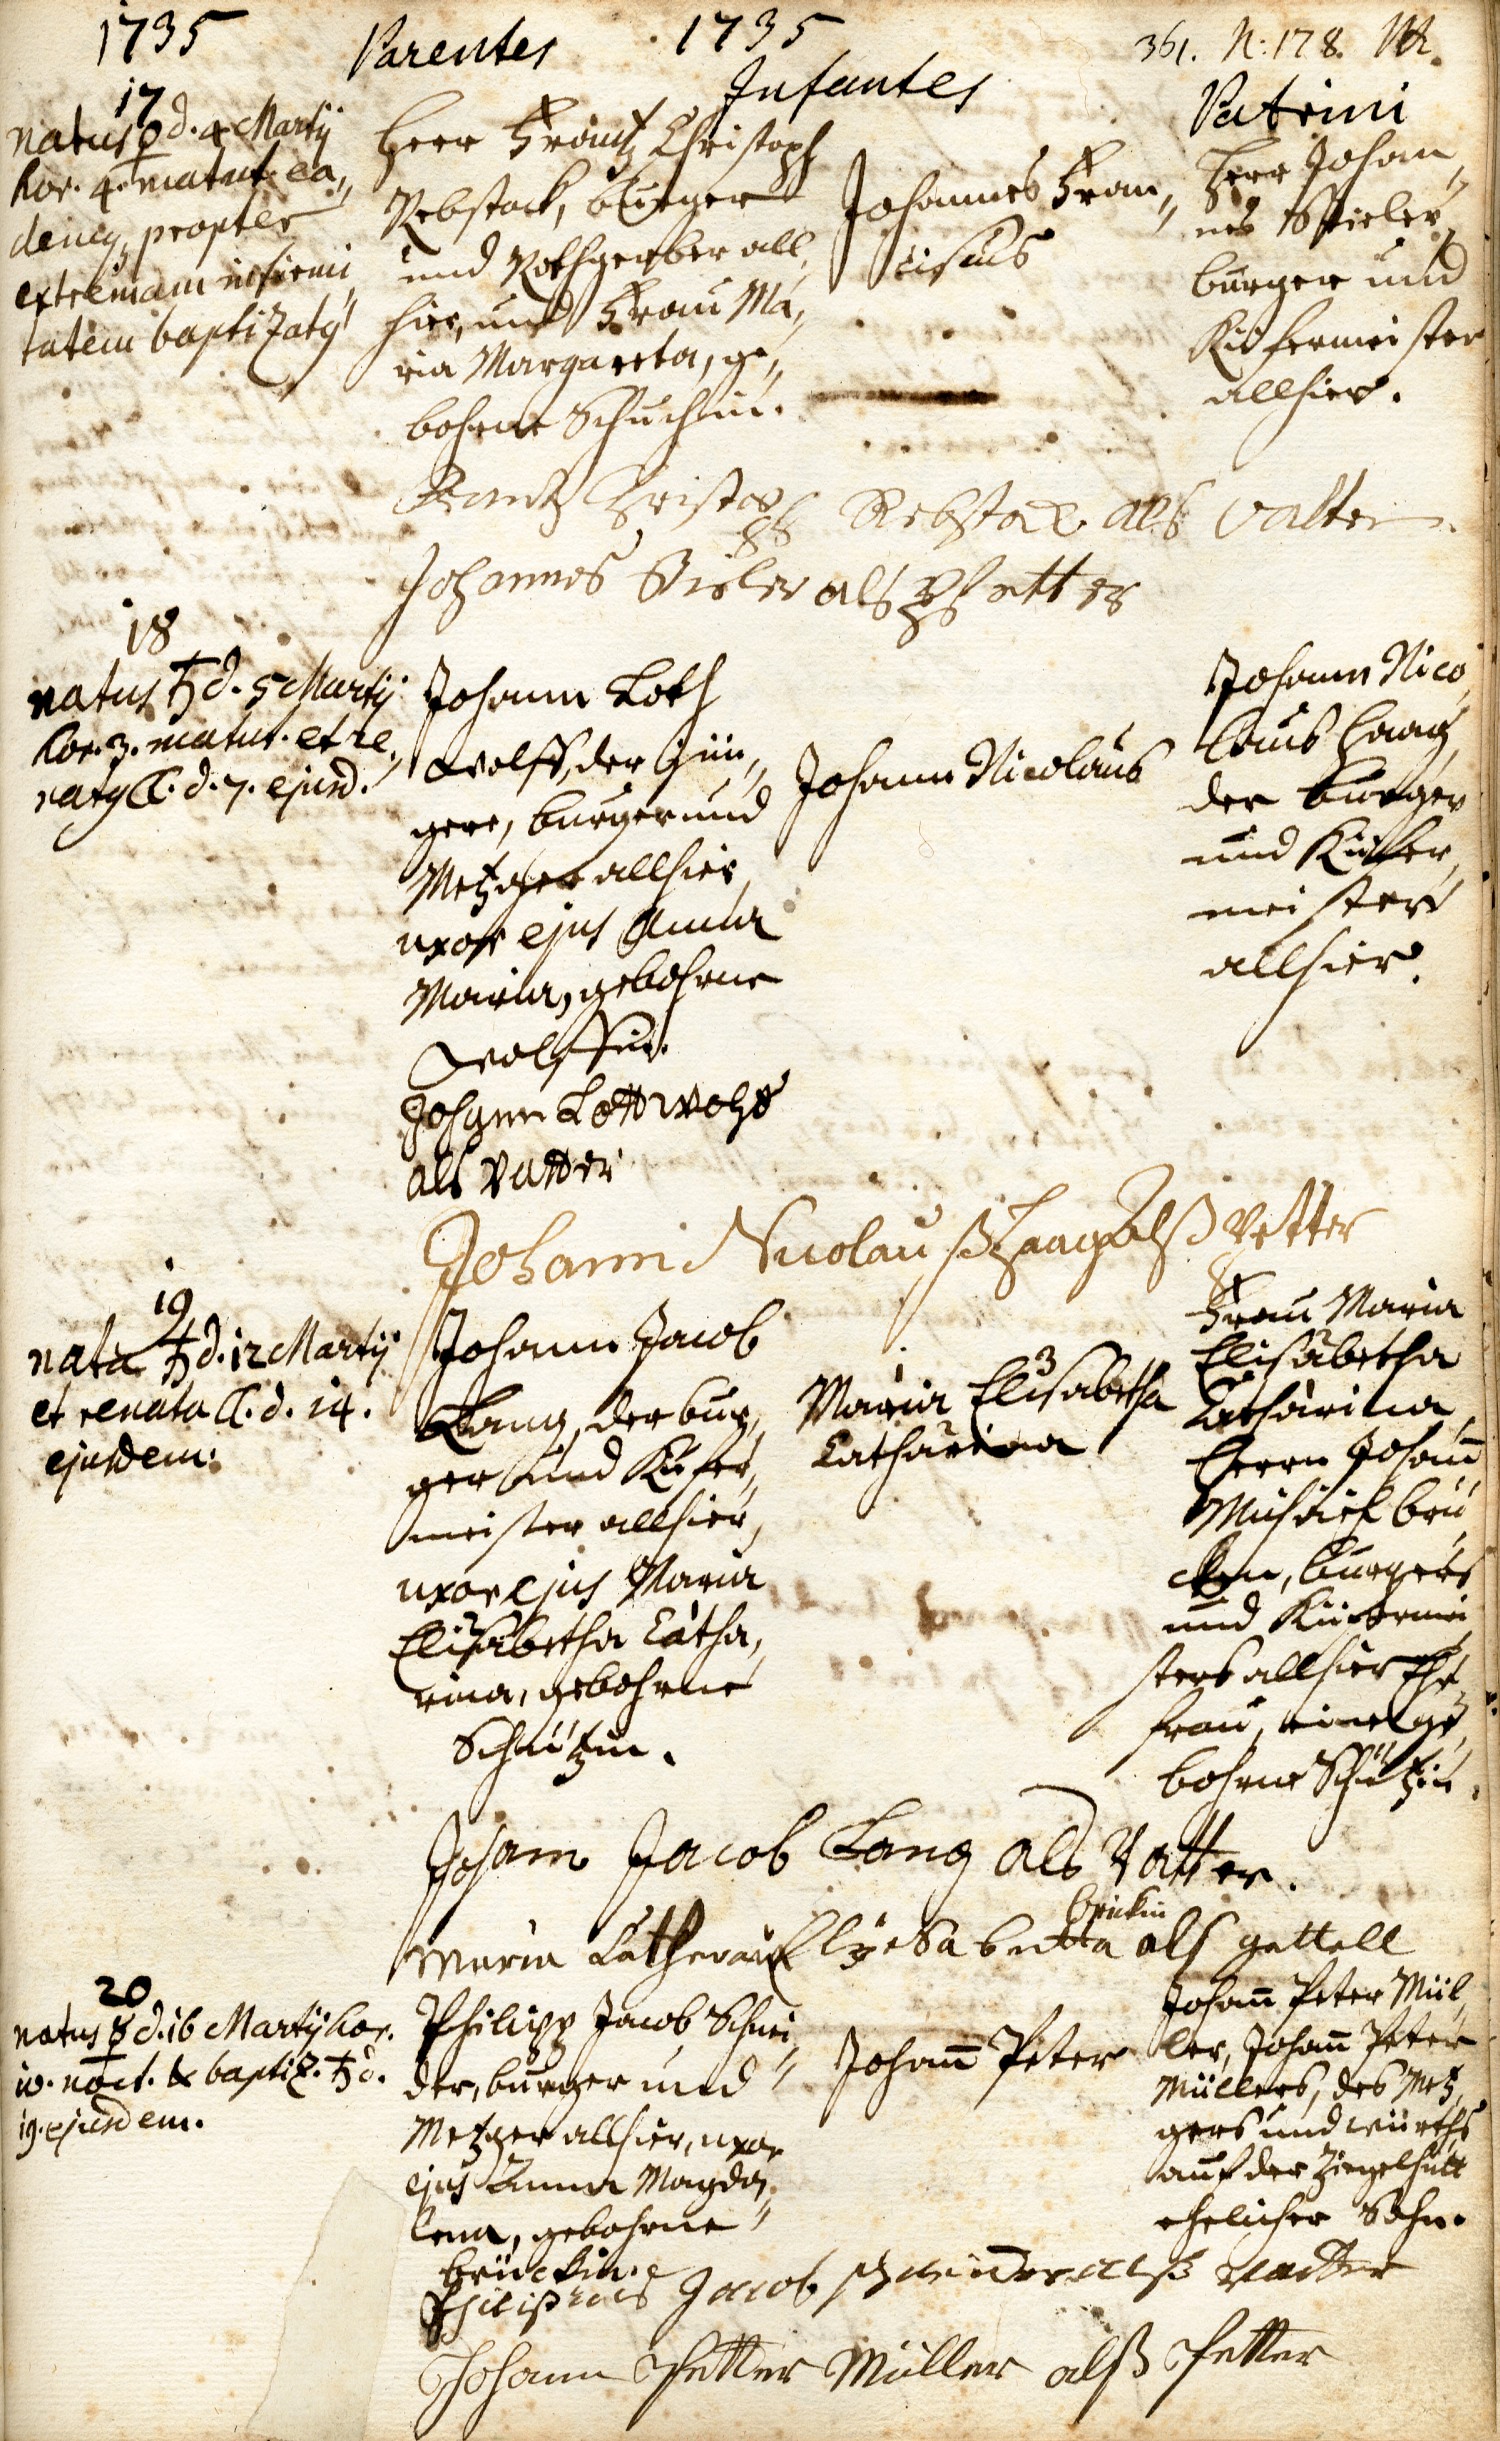 1735 Parentes 1735 Infantes 361. N: 178.
Patrini
17
natus ♀ d. 4 Martij
hor. 4. matut. ea„
demq₃ propter
extremam infirmi„
tatem baptizatꝰ
Herr Frantz Christoph
Rebstock, burger
und Rothgerber all„
hier, und Frau Ma„
ria Margareta, ge„
bohrne Schuchin.
Johannes Fran„
ciscus
Herr Johan„
nes Spieler,
burger und
Küfermeister
allhier.
Frantz Christoph Rebstock als Vatter
Johannes Bieler als Pfetter
18
natus ♄ d. 5 Martij
hor. 3. matut. et re„
natꝰ ☾. d. 7. ejusd.
Johann Loth
Wolff, der jün„
gere, burger und
Metzger allhier
uxor ejus Anna
Maria, gebohrne
Wolffin.
Johann Nicolaus
Johann Nico„
laus Haag,
der burger
und Küfer„
meister
allhier.
Johann Lott wolff
als Vatter
Johanni Nicolauß Haag alß Petter
19
nata ♄ d. 12 Martij
et renata ☾. d. 14.
ejusdem.
Johann Jacob
Lang, der bur„
ger und Küfer„
meister allhier,
uxor ejus Maria
Elisabetha Catha„
rina, gebohrne
Schützin.
Maria Elisabetha
Catharina
Frau Maria
Elisabetha
Catharina,
Herrn Johann
Michael Brü„
cken, burgers
und Küfermei„
sters allhier Ehe„
frau, eine ge„
bohrne Schützin.
Johann Jacob Lang als Vatter.
brückin
Maria Catherina Elysabetta als gettell
20
natus ☿ d. 16 Martij hor.
10. noct. & baptiz. ♄ d.
19. ejusdem.
Philipp Jacob Schnei„
der, burger und
Metzger allhier, uxor
ejus Anna Magda„
lena, gebohrne
brückin.
Johann Peter
Johann Peter Mül„
ler, Johann Peter
Müllers, des Metz„
gers und würths
auf der Ziegelhütt
ehelicher Sohn.
Jacob schneider alß Vatter
Johann Petter Müller alß Petter